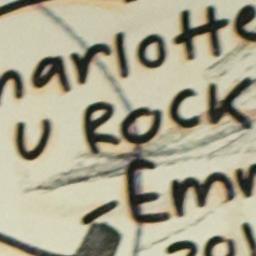 harlotte
U ROCK
-Em
201